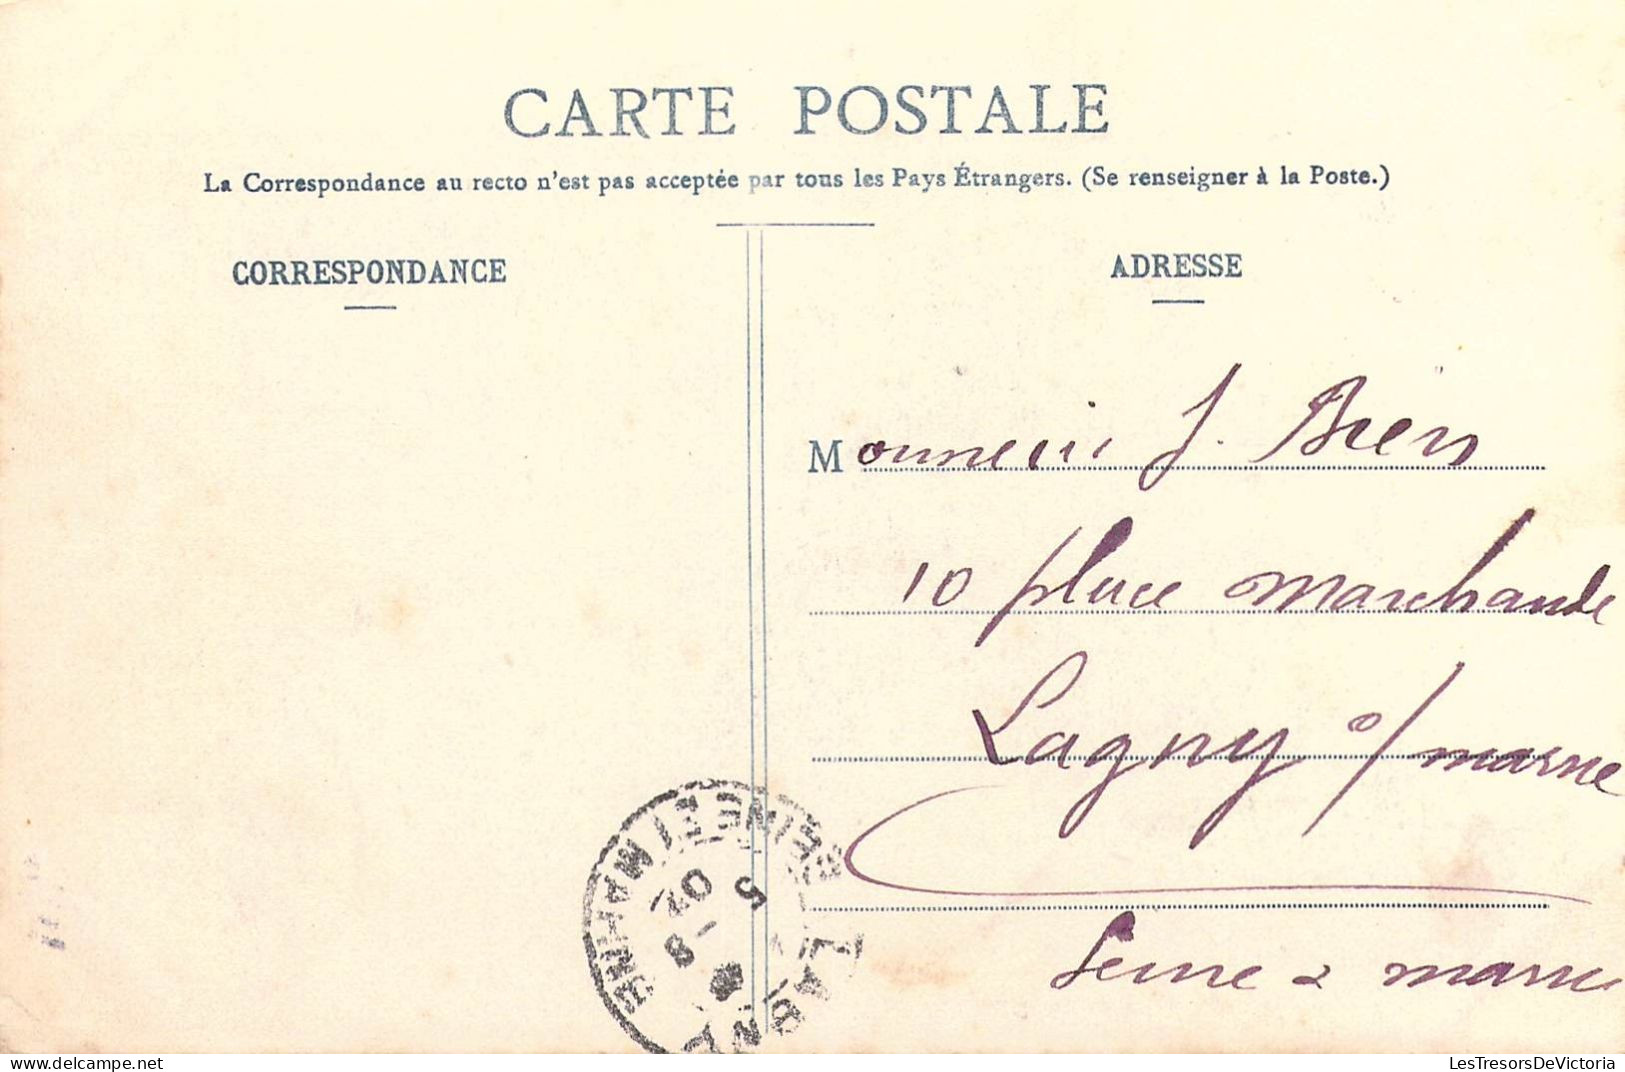 CARTE POSTALE
La Correspondance au recto n'est pas acceptée par tous les Pays Étrangers. (Se renseigner à la Poste.)
CORRESPONDANCE
ADRESSE
Monsieur J.
10 place Marchande
Lagny s/ marne
Seine & marne
LAGNY
SEINE ET MARNE
LesTresorsDeVictoria